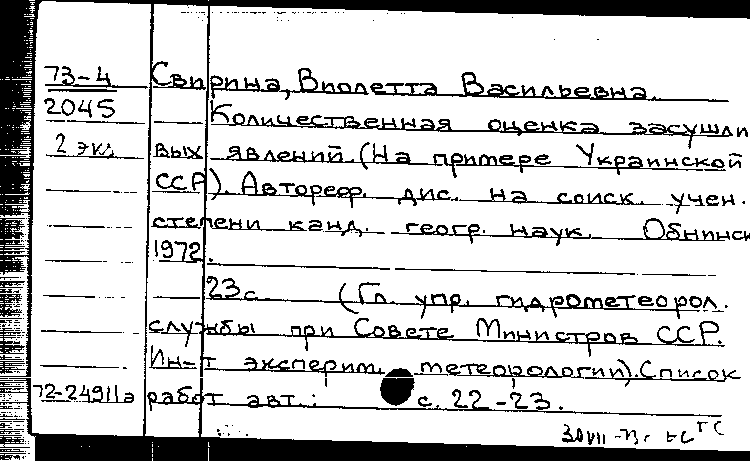 73-4 Свирина, Виолетта Васильевна.
2045 Количественная оценка засушли
2 экз вых явлений (На примере Украинской
ССР). Автореф. дис. на соиск. учен.
степени канд. геогр. наук. Обнинск
1972.
23 с. (Гл. упр. гидрометеорол.
службы при Совете Министров ССР.
Ин-т эксперим. метеорологии). Список
72-24911а работ авт.: с. 22-23.